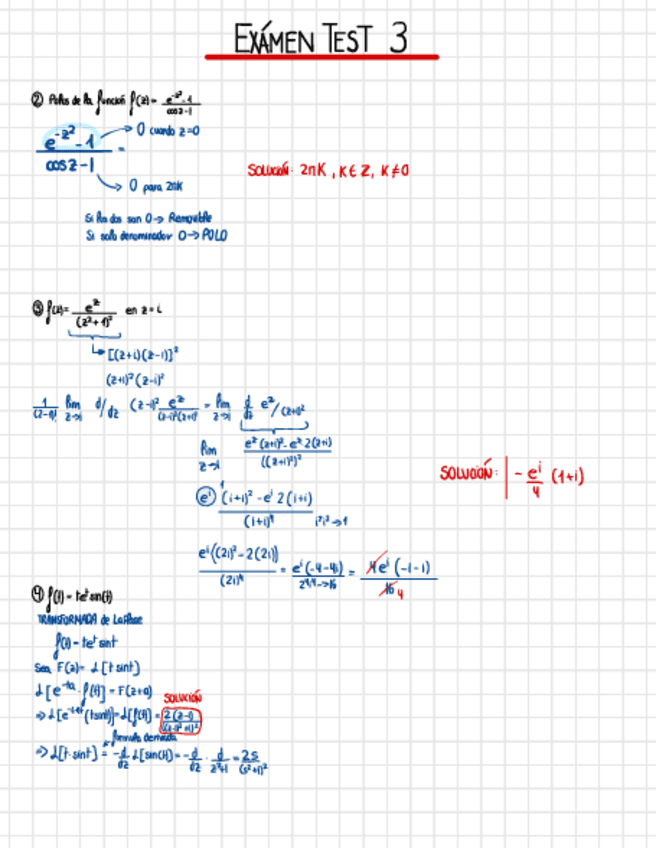 EXÁMEN TEST 3
② Polos de la función f(z)= (e^{-z²}-1)/(cosz-1)
(e^{-z²}-1)/(cosz-1) =
→ 0 cuando z=0
→ 0 para 2πK
SOLUCIÓN: 2πK, K∈Z, K≠0
Si los dos son 0 → Removible
Si solo denominador 0 → POLO
③ f(z)= e^z/(z²+1)² en z=i
↳ [(z+i)(z-i)]²
(z+i)²(z-i)²
lim z→i d/dz (z-i)² e^z/((z-i)²(z+i)²) = lim z→i d/dz e^z/(z+i)²
lim z→i (e^z(z+i)²-e^z 2(z+i))/((z+i)²)²
e^i ((i+i)²-e^i 2(i+i))/(i+i)⁴
SOLUCIÓN: -e^i/4 (1+i)
e^i((2i)²-2(2i))/(2i)⁴ = e^i(-4-4i)/16 = 4e^i(-1-i)/16 4
④ f(t)=te^t sin(t)
TRANSFORMADA de Laplace
f(t)=te^t sint
Sea F(z)=L[t sint]
L[e^{-ta}·f(t)]=F(z+a)
SOLUCIÓN
⇒ L[f(t)]= 2(z-1)/((z-1)²+1)²
formula derivada
⇒ L[t·sint]= -d/dz L[sin(t)]=-d/dz · = 2s/(s²+1)²